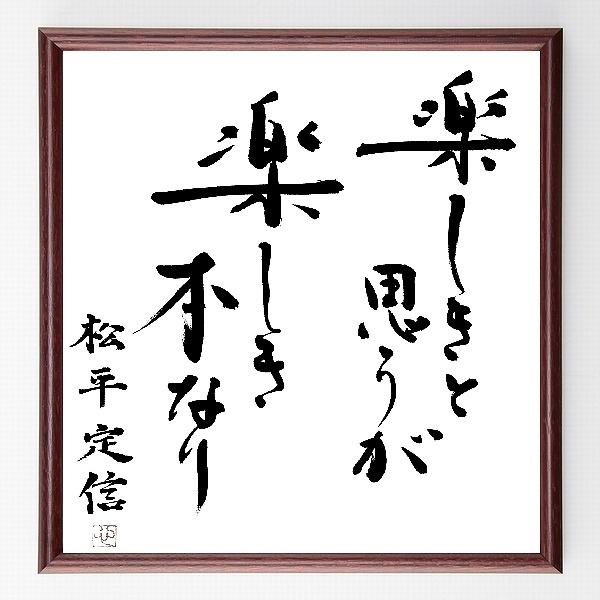 楽しきと
思うが
楽しき
本なり
松平定信